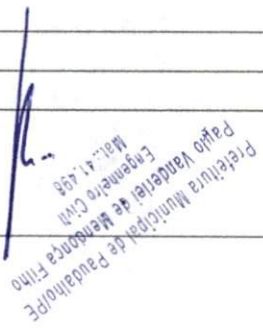 Prefeitura Municipal de Paudalho/PE
Paulo Vanderlei de Mendonça Filho
Engenheiro Civil
Mat.: 41.498